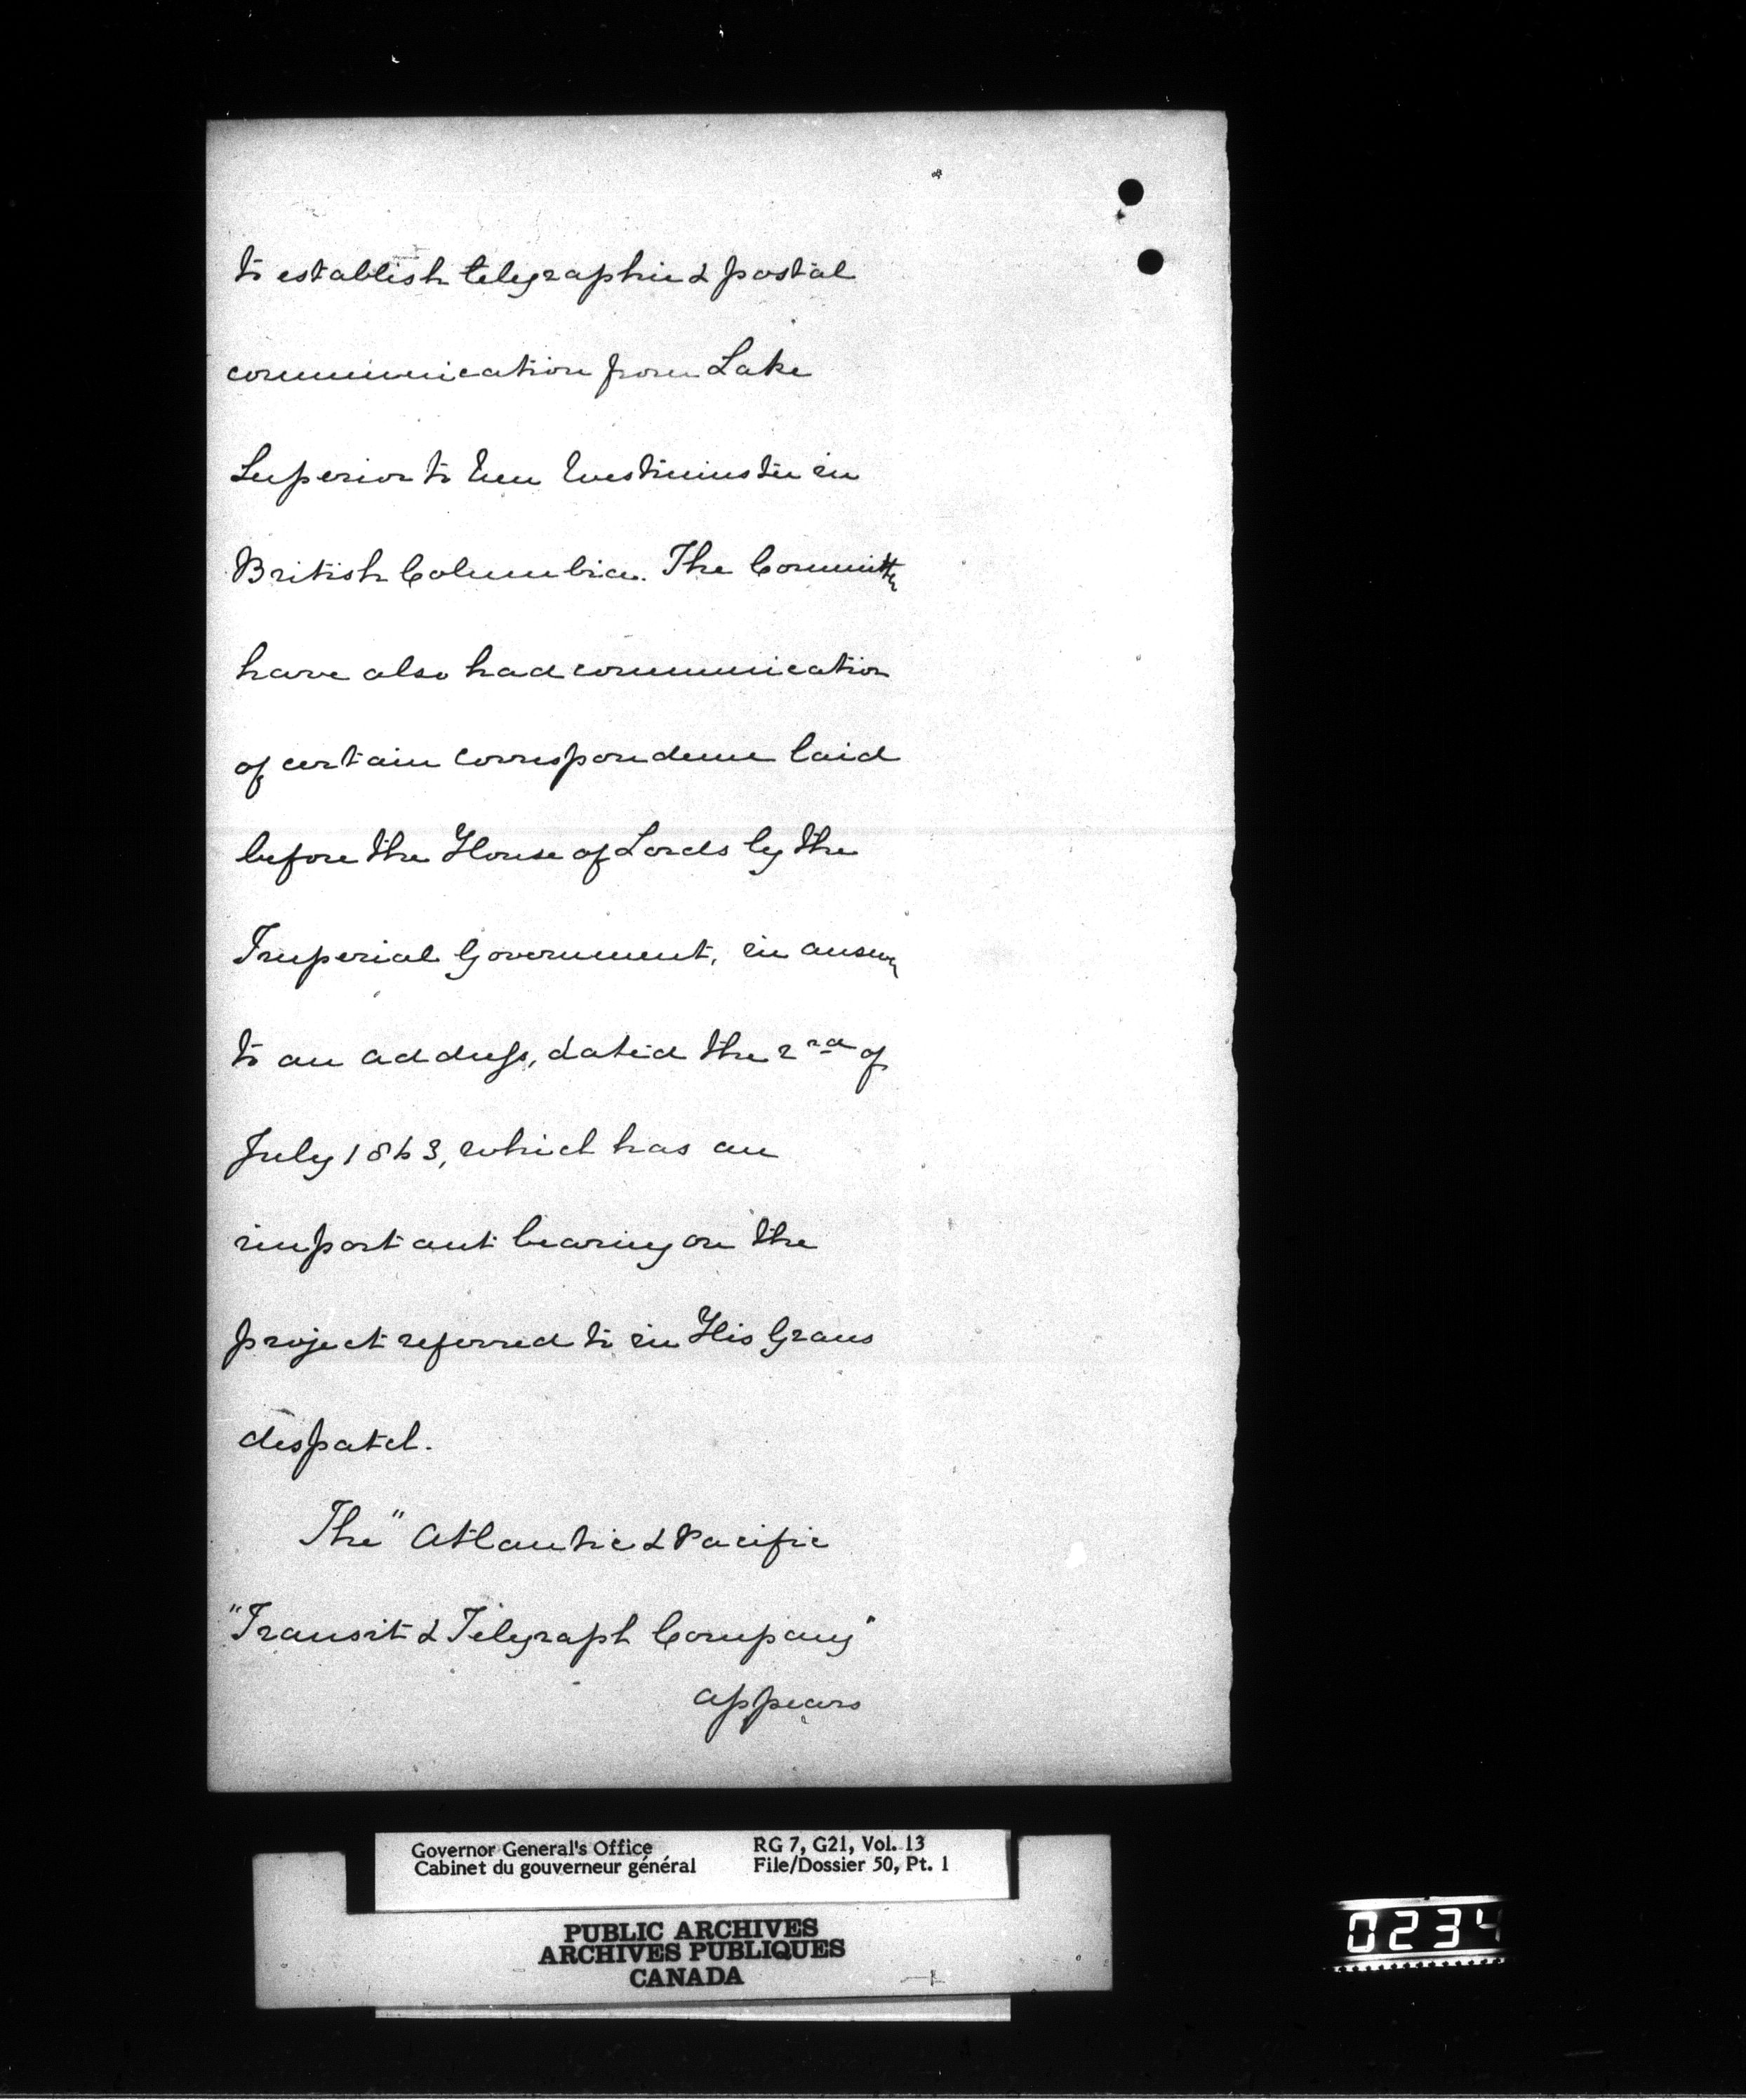 to establish telegraphic & postal
communication from Lake
Superior to New Westminster in
British Columbia. The Committee
have also had communication
of certain correspondence laid
before the House of Lords by the
Imperial Government, in answer
to an address, dated the 2nd of
July 1863, which has an
important bearing on the
project referred to in His Graces
despatch.
The "Atlantic & Pacific
"Transit & Telegraph Company"
appears
Governor General's Office
Cabinet du gouverneur général
RG 7, G21, Vol. 13
File/Dossier 50, Pt. 1
PUBLIC ARCHIVES
ARCHIVES PUBLIQUES
CANADA
0234